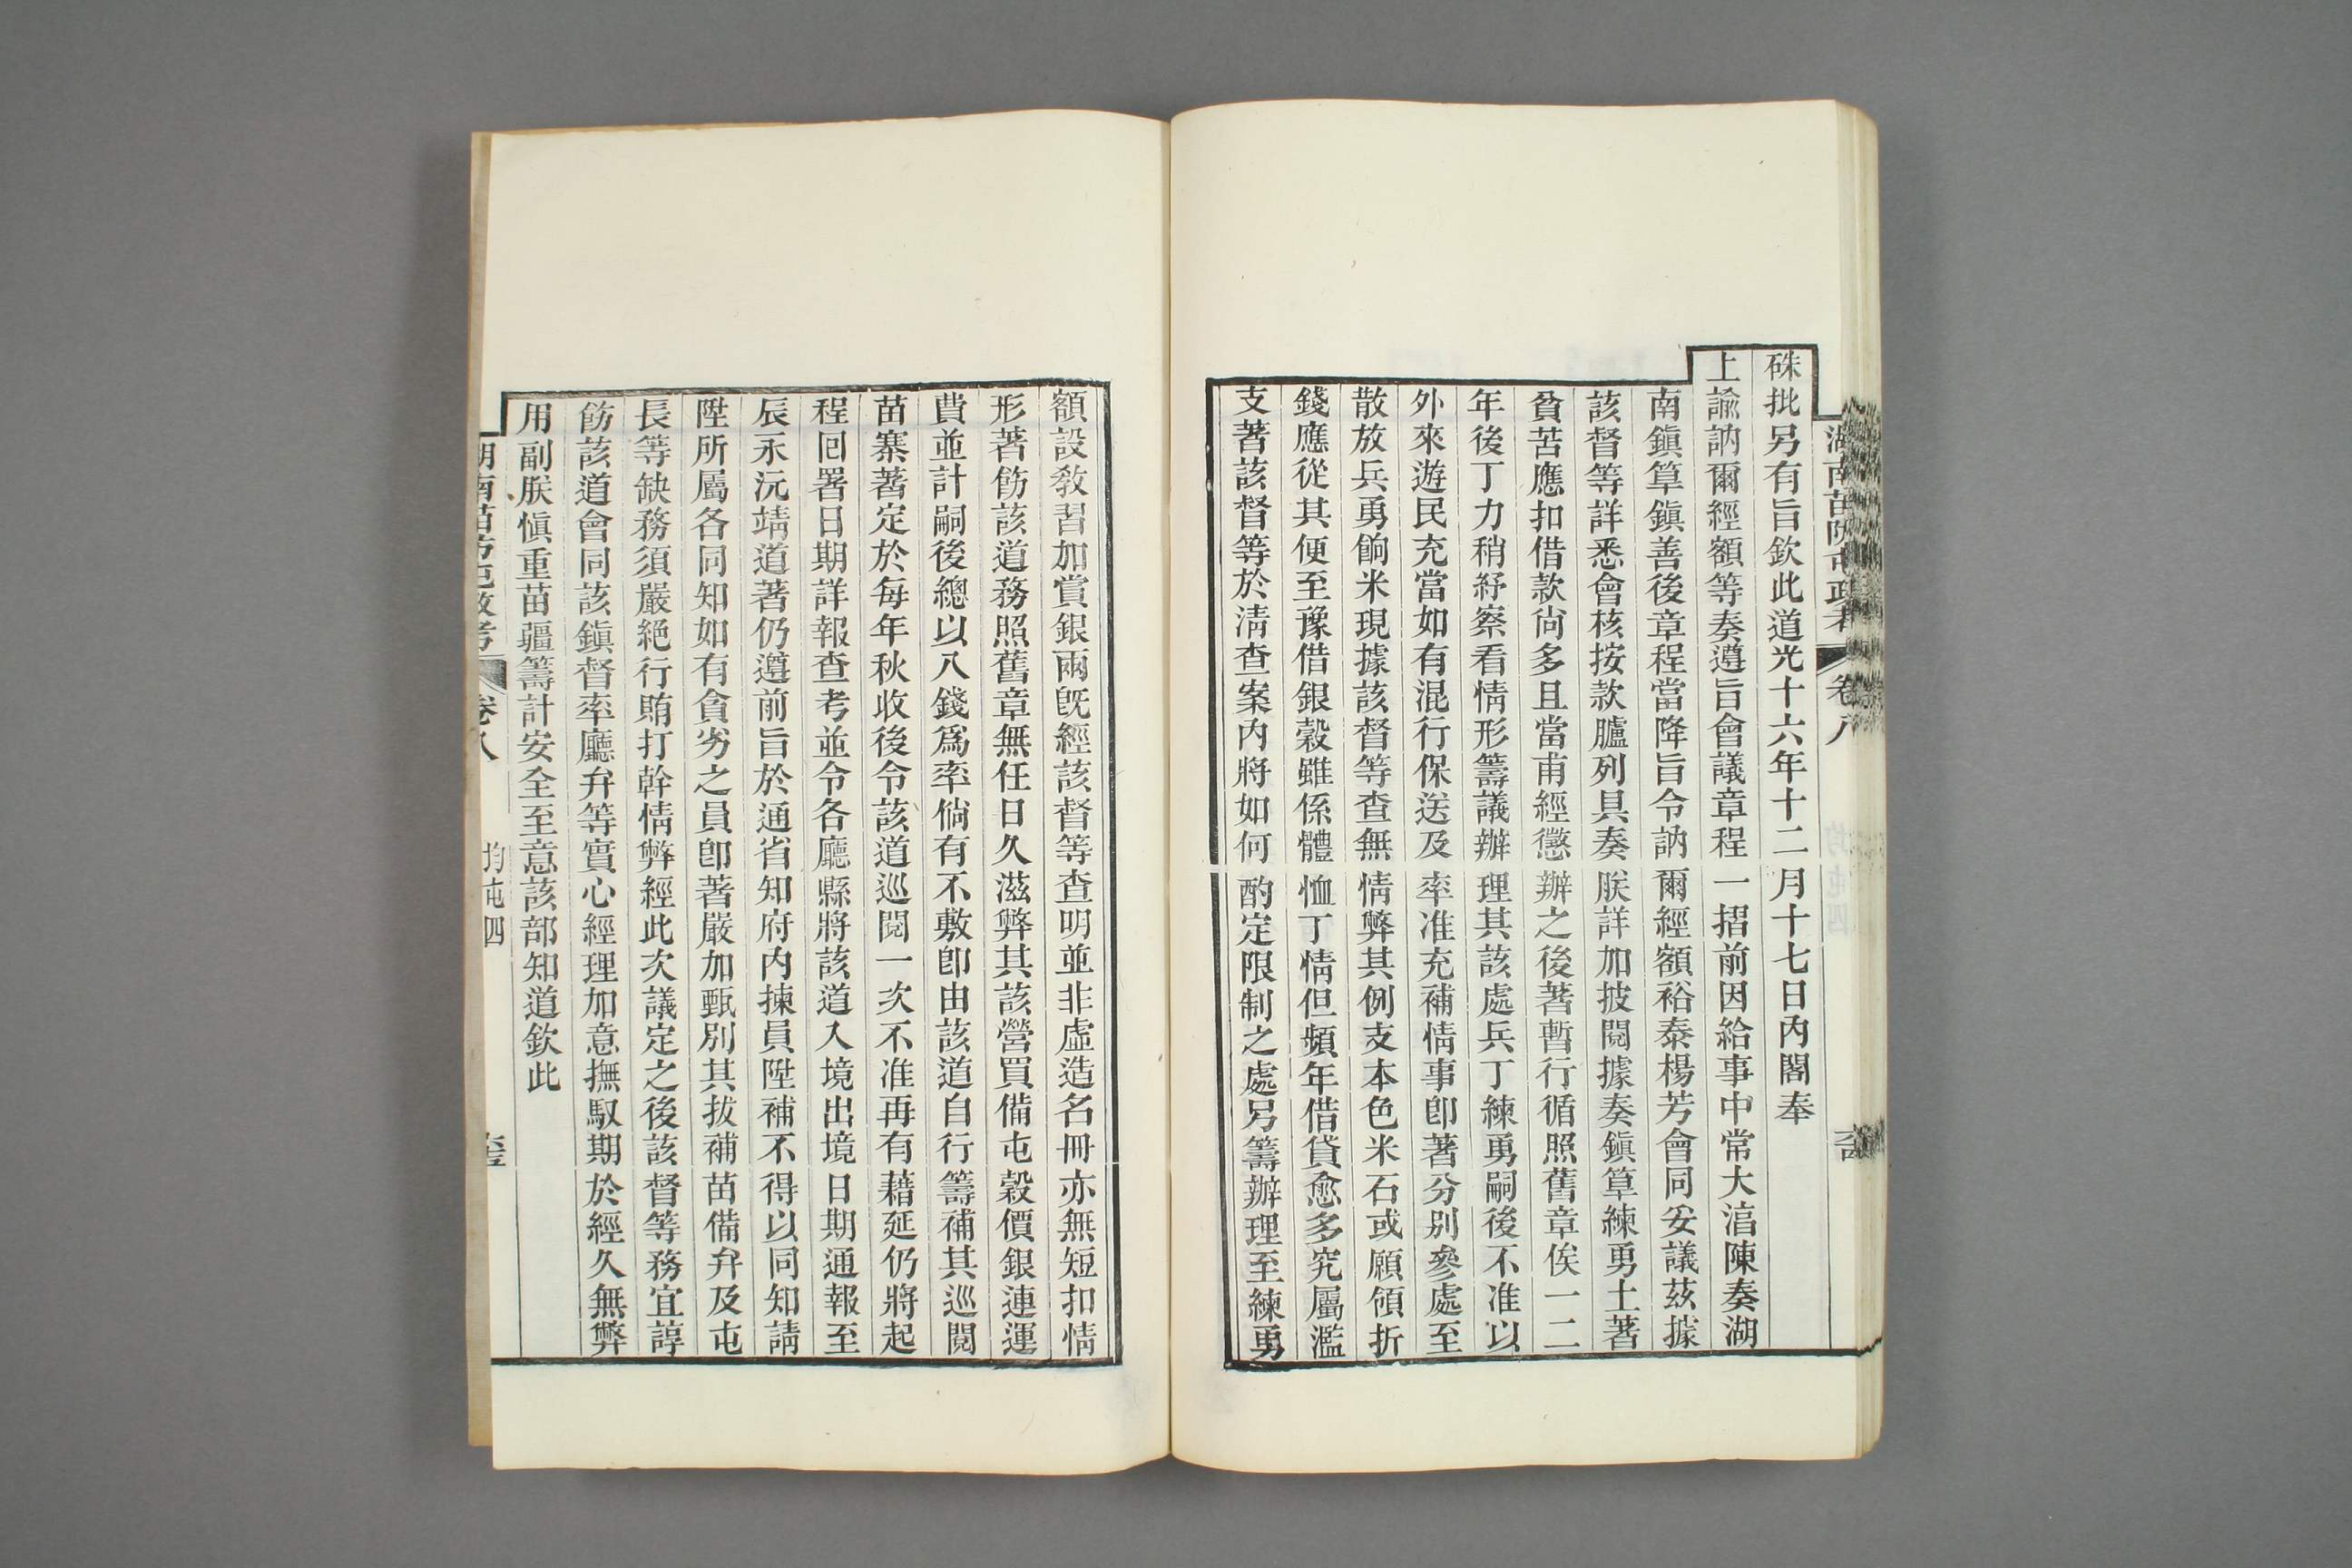 湖南苗防屯政考 卷八
硃批另有旨欽此道光十六年十二月十七日內閣奉
上諭訥爾經額等奏遵旨會議章程一摺前因給事中常大淯陳奏湖
南鎭筸鎭善後章程當降旨令訥爾經額裕泰楊芳會同妥議茲據
該督等詳悉會核按款臚列具奏朕詳加披閱據奏鎭筸練勇土著
貧苦應扣借款尙多且當甫經懲辦之後著暫行循照舊章俟一二
年後丁力稍紓察看情形籌議辦理其該處兵丁練勇嗣後不准以
外來遊民充當如有混行保送及率准充補情事卽著分別參處至
散放兵勇餉米現據該督等查無情弊其例支本色米石或願領折
錢應從其便至豫借銀穀雖係體恤丁情但頻年借貸愈多究屬濫
支著該督等於淸查案內將如何酌定限制之處另籌辦理至練勇
額設敎習加賞銀兩旣經該督等查明並非虛造名冊亦無短扣情
形著飭該道務照舊章無任日久滋弊其該營買備屯穀價銀連運
費並計嗣後總以八錢爲率倘有不敷卽由該道自行籌補其巡閱
苗寨著定於每年秋收後令該道巡閱一次不准再有藉延仍將起
程回署日期詳報查考並令各廳縣將該道入境出境日期通報至
辰永沅靖道著仍遵前旨於通省知府內揀員陞補不得以同知請
陞所屬各同知如有貪劣之員卽著嚴加甄別其拔補苗備弁及屯
長等缺務須嚴絕行賄打幹情弊經此次議定之後該督等務宜諄
飭該道會同該鎭督率廳弁等實心經理加意撫馭期於經久無弊
用副朕愼重苗疆籌計安全至意該部知道欽此
湖南苗防屯政考 卷八 均屯四